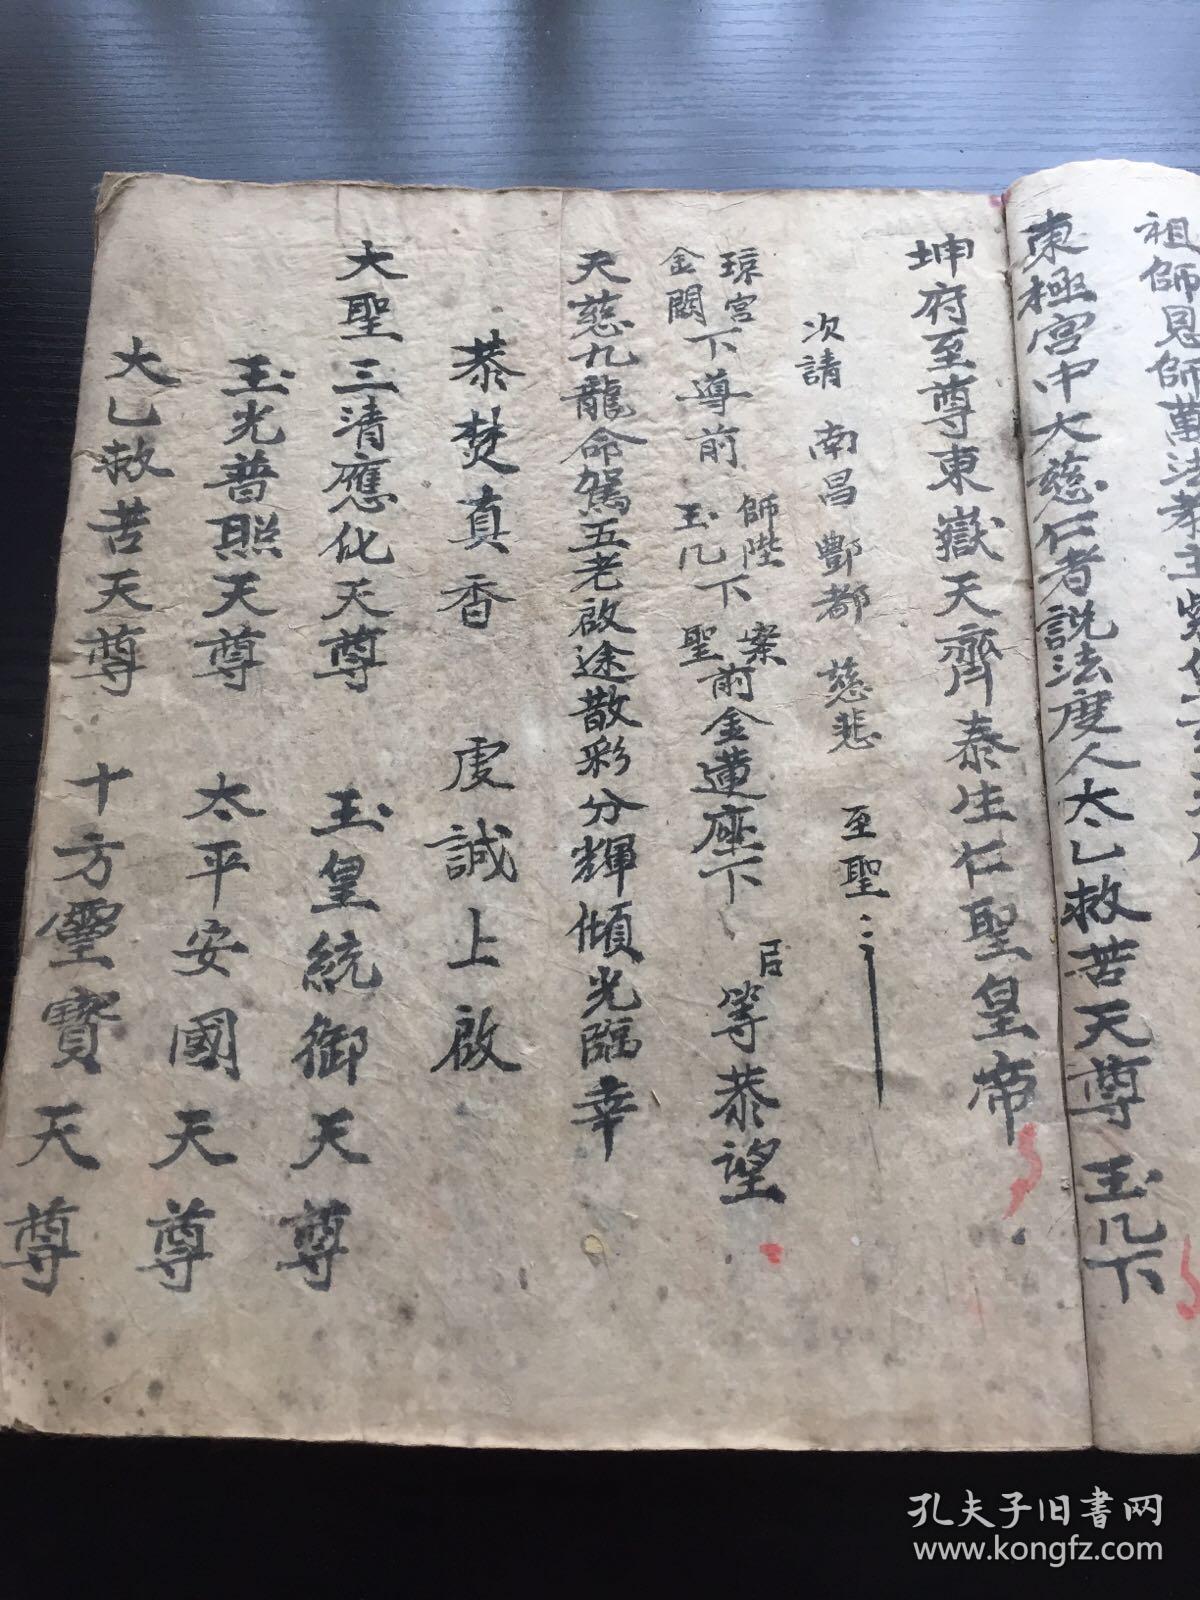 祖師恩師萬法教主紫皇
東極宮中大慈仁者說法度人太乙救苦天尊玉几下
坤府至尊東嶽天齊泰生仁聖皇帝
次請 南昌 酆都 慈悲 至聖
琼宮金闕下導前 師陛玉几下 案聖前金蓮座下 臣等恭望
天慈九龍命駕五老啟途散彩分輝傾光臨幸
恭焚真香 虔誠上啟
大聖三清應化天尊 玉皇統御天尊
玉光普照天尊 太平安國天尊
大乙救苦天尊 十方靈寶天尊
孔夫子旧书网
www.kongfz.com